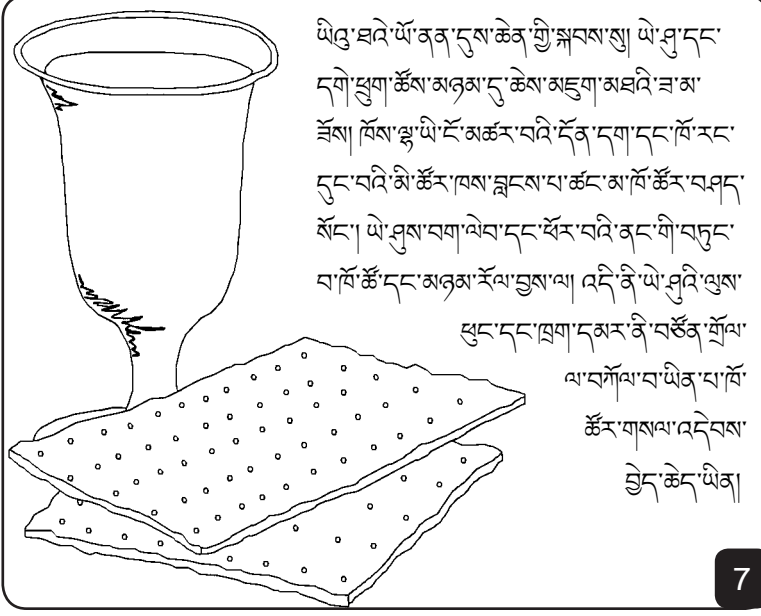 ཡིའུ་ཐའེ་ཡོ་ནན་དུས་ཆེན་གྱི་སྐབས་སུ། ཡེ་ཤུ་དང་
དགེ་ཕྲུག་ཚོས་མཉམ་དུ་ཆེས་མཇུག་མཐའི་ཟ་མ་
ཟོས། ཁོས་ལྷ་ཡི་ངོ་མཚར་བའི་དོན་དག་དང་ཁོ་རང་
དུང་བའི་མི་ཚོར་ཁས་བླངས་པ་ཚང་མ་ཁོ་ཚོར་བཤད་
སོང་། ཡེ་ཤུས་བག་ལེབ་དང་ཕོར་བའི་ནང་གི་བཏུང་
བ་ཁོ་ཚོ་དང་མཉམ་རོལ་བྱས་ལ། འདི་ནི་ཡེ་ཤུའི་ལུས་
ཕུང་དང་ཁྲག་དམར་ནི་བཙོན་གྲོལ་
ལ་བཀོལ་བ་ཡིན་པ་ཁོ་
ཚོར་གསལ་འདེབས་
བྱེད་ཆེད་ཡིན།
7